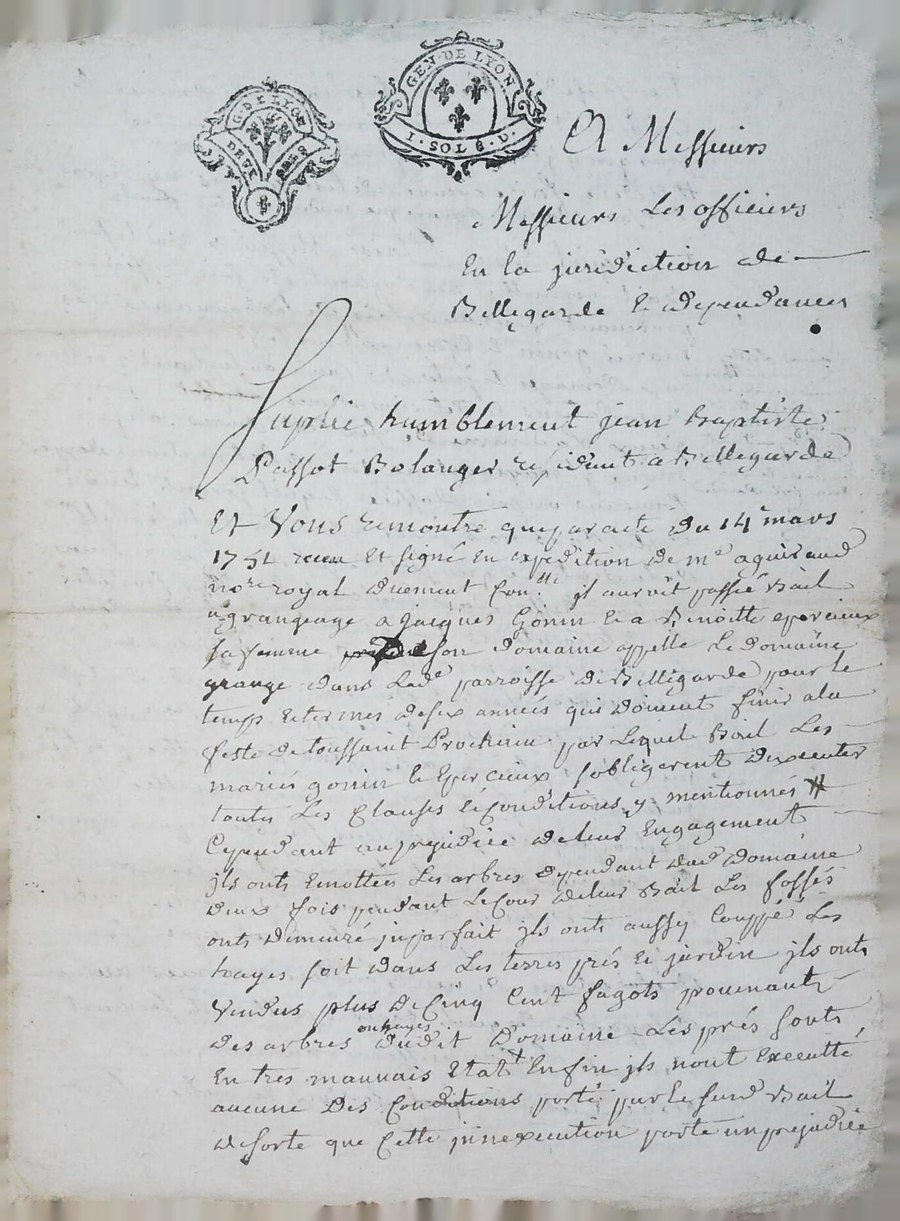 GEN·DE LYON
G·DE LYON
I·SOL 8·D·
A Messieurs
Messieurs Les officiers
En la juridiction de
Bellegarde & dependances
Suplie humblement jean Baptiste
Passot Bolanger residant a Bellegarde
Et Vous remontre que par acte du 14e mars
1751 receu Et signé En expedition de me aguiraud
nore royal duement Conllé il auroit passé Bail
a grangeage a jacques Gonin & a Benoitte epercieux
sa femme De son domaine appellé Le domaine
grange dans Lade parroisse de Bellegarde pour le
temps & termes de six années qui doivent finir a la
feste de toussaint Prochain par Lequel Bail Les
mariés gonin & Epercieux sobligerent dexecuter
toutes Les Clauses & Conditions y mentionnés #
Cependant au prejudice de leur Engagement
jls onts Emottées Les arbres dependant dud Domaine
deux fois pendant Le Cour de leur Bail Les fossés
onts demeuré jnparfait jls onts aussy Couppé Les
hayes soit dans Les terres prés & jardin jls onts
Vendus plus de Cinq Cent fagots provenants
ou hayes
des arbres dudit Domaine Les prés sonts
En tres mauvais Etat + Enfin jls nont Executté
aucune Des Conditions porté par le surd Bail
de sorte que Cette jnnexecution porte un prejudice